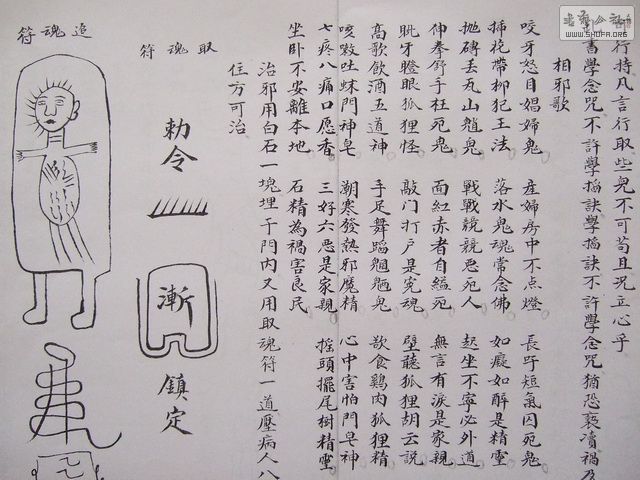 行持凡言行取些兒不可苟且况立心乎
書學念咒不許學掐訣學掐訣不許學念咒猶恐褻瀆禍及
相邪歌
咬牙怒目娼婦鬼 產婦房中不点燈 長吁短氣囚死鬼
掃挽帶柳犯王法 落水鬼魂常念佛 如癡如醉是精靈
抛磚丢瓦山魈鬼 戰戰競競惡死人 起坐不寧必外道
伸拳舒手枉死鬼 面紅赤者自縊死 無言有淚是家親
毗牙瞪眼狐狸怪 敲门打户是寃魂 壁聽狐狸胡云説
高歌飲酒五道神 手足舞蹈魍魎鬼 飲食鷄肉狐狸精
咳嗽吐沫門神皂 潮寒發熱邪魔精 心中害怕門皂神
七疼八痛口愿香 三好六惡是家親 摇頭擺尾樹精靈
坐卧不安離本地 石精為禍害良民
治邪用白石一塊埋于門内又用取魂符一道壓病人八
住方可治
取魂符
勅令
漸
鎮定
追魂符